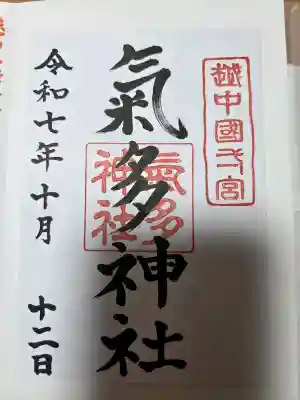 越中國弌宮
氣多神社
氣多
神社
令和七年十月
十二日